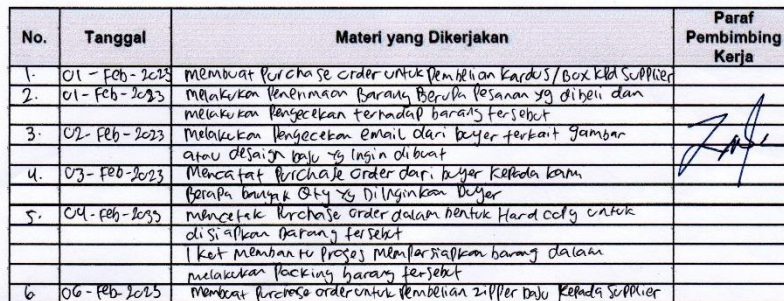 No. Tanggal Materi yang Dikerjakan Paraf Pembimbing Kerja
1. 01 - Feb - 2023 membuat Purchase order untuk Pembelian Kardus / Box kpd Supplier
2. 01 - Feb - 2023 melakukan Penerimaan Barang Berupa Pesanan yg dibeli dan
melakukan Pengecekan terhadap barang tersebut
3. 02 - Feb - 2023 Melakukan Pengecekan email dari buyer terkait gambar
atau desaign baju yg ingin dibuat
4. 03 - Feb - 2023 Mencatat Purchase order dari buyer kepada kami
Berapa banyak Qty yg Diinginkan buyer
5. 04 - Feb - mencetak Purchase order dalam bentuk Hard copy untuk
disiapkan barang tersebut
Iket membantu Proses mempersiapkan barang dalam
melakukan Packing barang tersebut
6 06 - Feb - 2023 membuat Purchase order untuk Pembelian zipper baju kepada Supplier